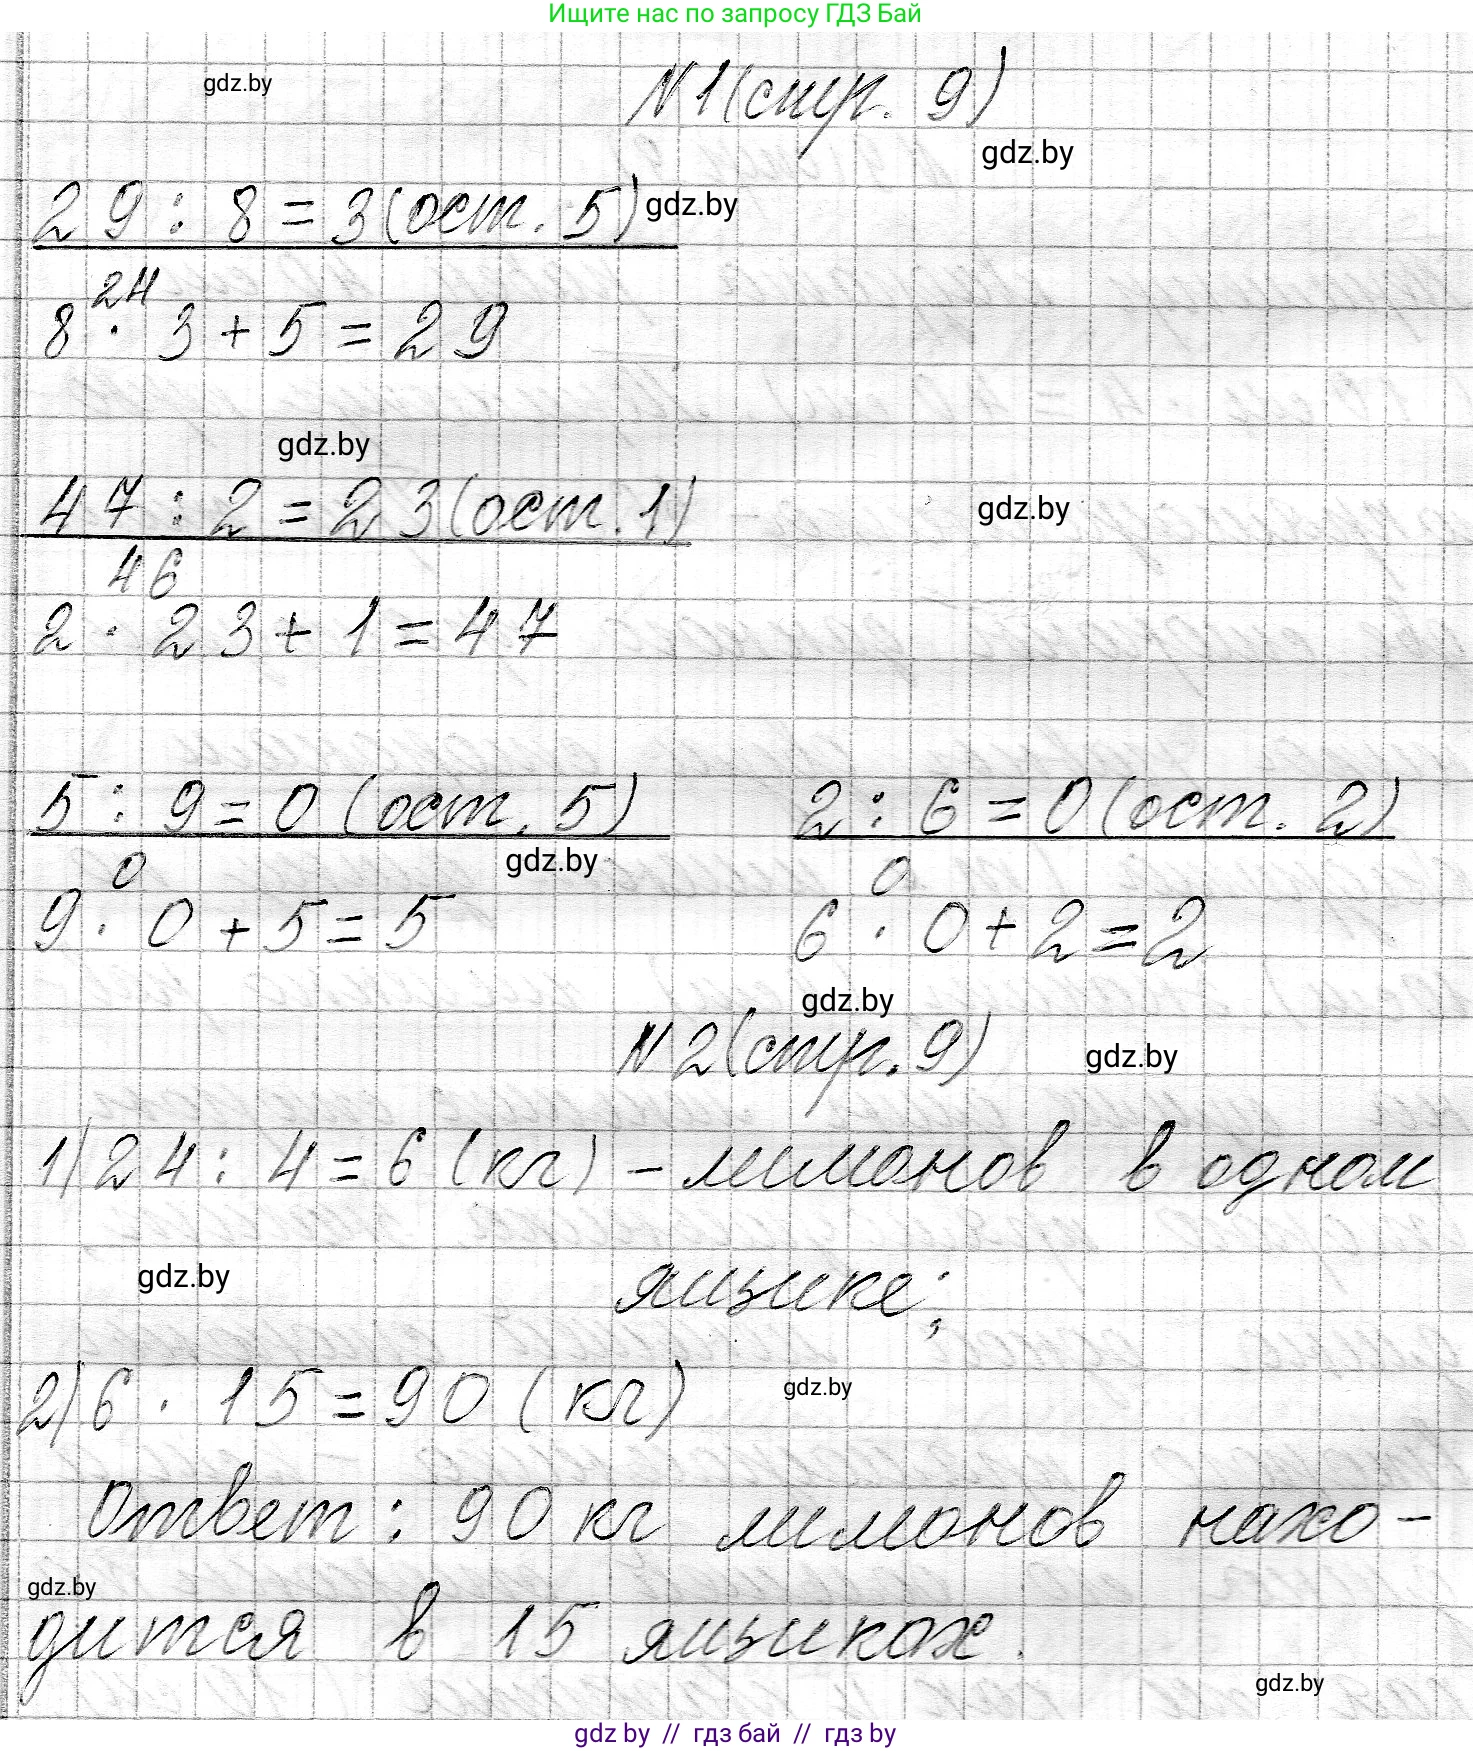 Ищите нас по запросу ГДЗ Бай
gdz.by
N1(стр. 9)
gdz.by
29 : 8 = 3(ост. 5)
gdz.by
24
8 · 3 + 5 = 29
gdz.by
47 : 2 = 23(ост. 1)
gdz.by
46
2 · 23 + 1 = 47
5 : 9 = 0 (ост. 5)
2 : 6 = 0(ост. 2)
gdz.by
0
0
9 · 0 + 5 = 5
6 · 0 + 2 = 2
gdz.by
N2(стр. 9)
gdz.by
1) 24 : 4 = 6 (кг) – лимонов в одном
gdz.by
ящике;
2) 6 · 15 = 90 (кг)
gdz.by
Ответ: 90 кг лимонов нахо-
gdz.by
дится в 15 ящиках.
gdz.by
gdz by // гдз бай // гдз by